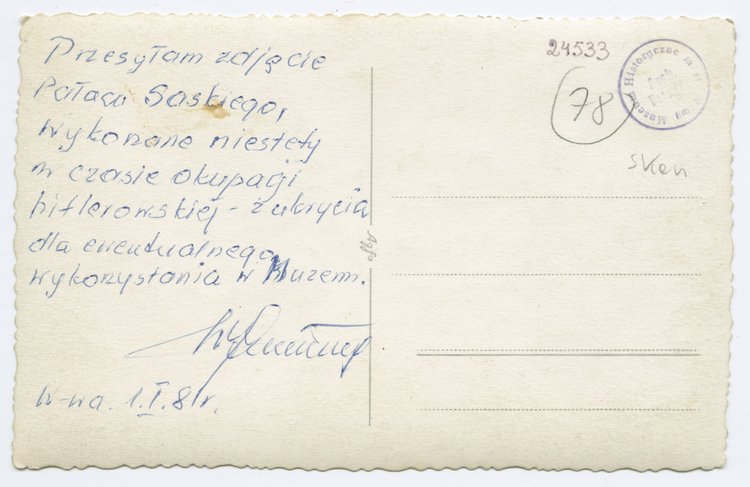 Przesyłam zdjęcie
Pałacu Saskiego,
wykonane niestety
w czasie okupacji
hitlerowskiej - z ukrycia
dla ewentualnego
wykorzystania w Muzeum.
W-wa. 1.I.81r.
Agfa
24533
78
Muzeum Historyczne m. st.
Sken